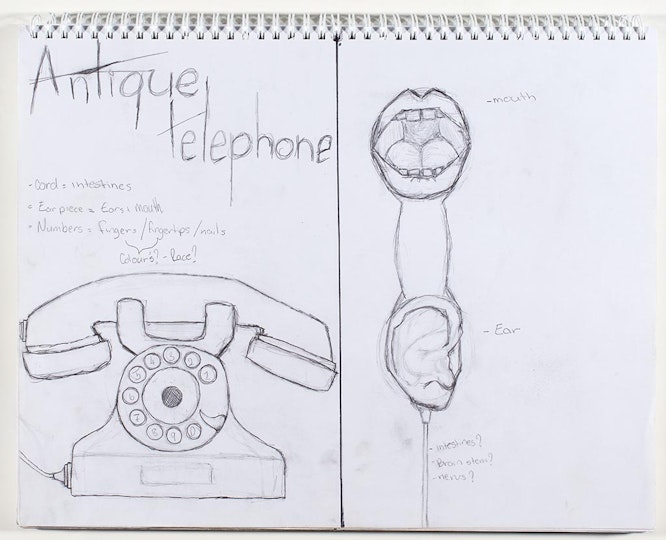 Antique
telephone
- Cord = intestines
• Earpiece = Ears + mouth
• Numbers = fingers / fingertips / nails
Colours? - Race?
- mouth
- Ear
- intestines?
- Brain stem?
- nerves?